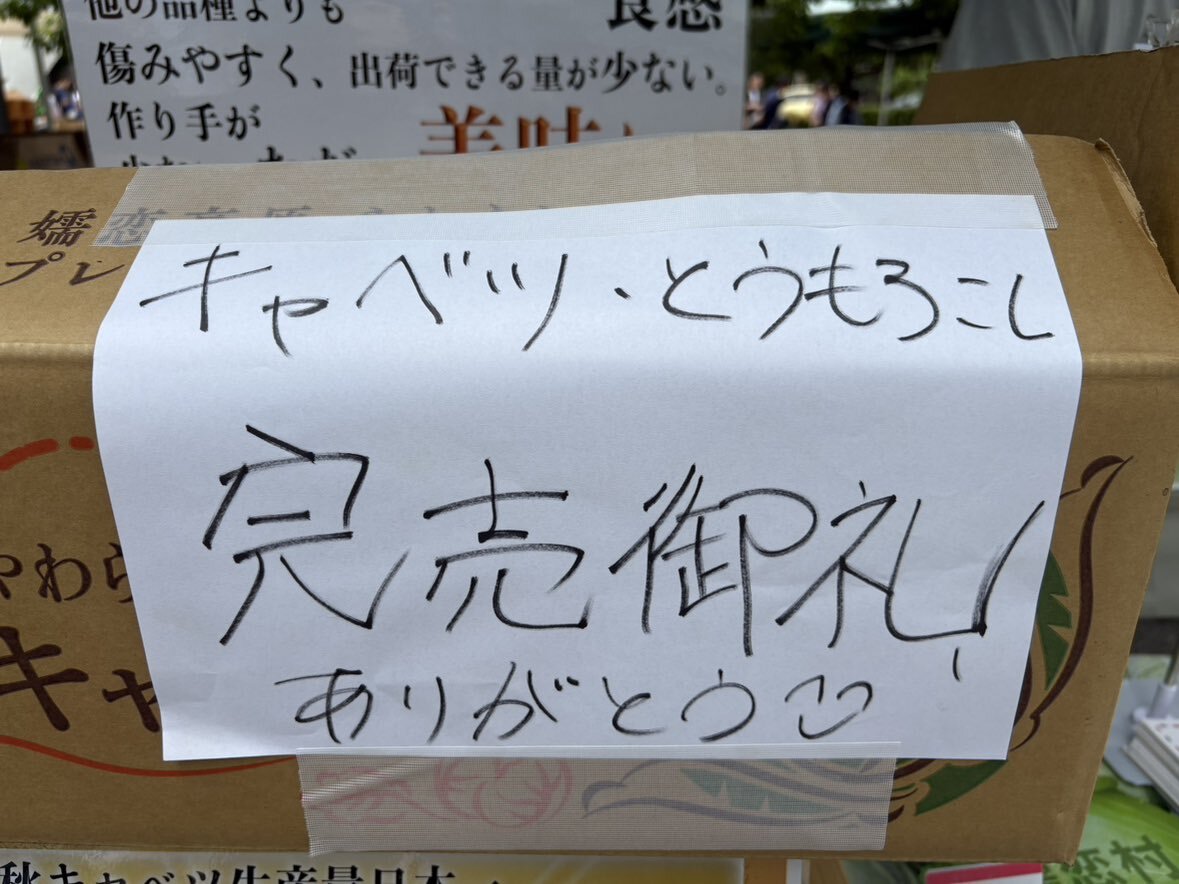 他の品種よりも
食感
傷みやすく、出荷できる量が少ない。
作り手が
美味し
嬬恋高原
プレ
キャベツ、とうもろこし
完売御礼!
ありがとう
やわら
キャ
秋キャベツ生産量日本一